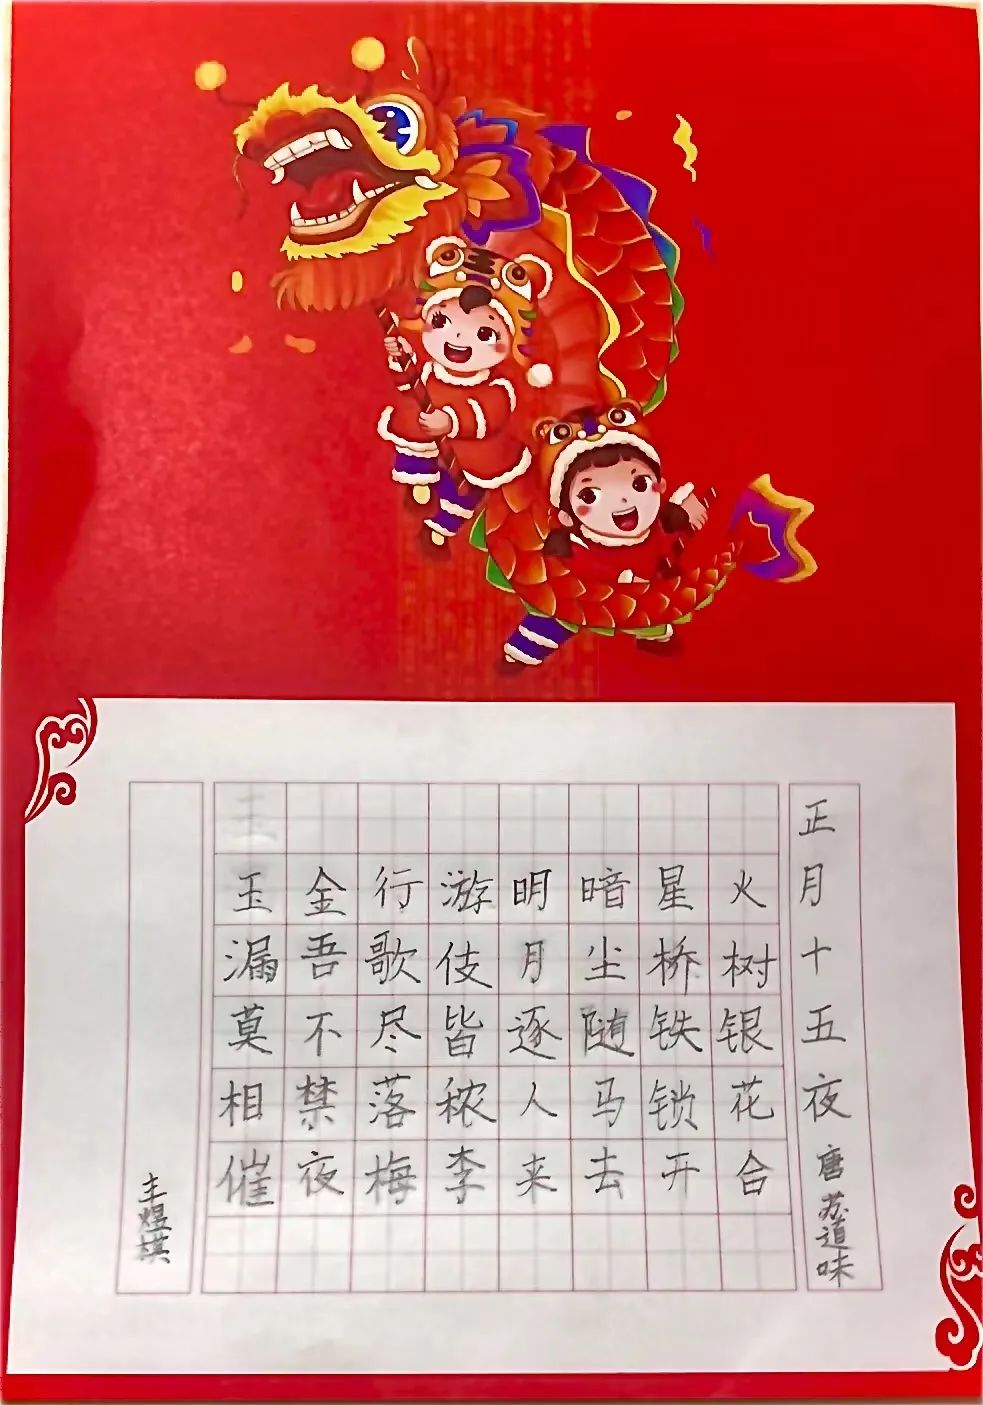 正月十五夜 唐 苏道味
火树银花合
星桥铁锁开
暗尘随马去
明月逐人来
游伎皆秾李
行歌尽落梅
金吾不禁夜
玉漏莫相催
王煜棋